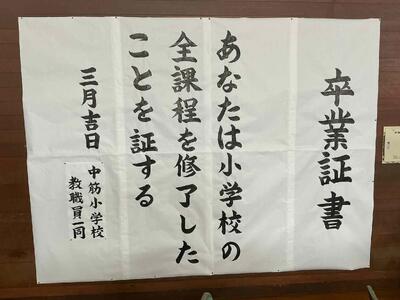 卒業証書
あなたは小学校の
全課程を修了した
ことを証する
三月吉日
中筋小学校
教職員一同